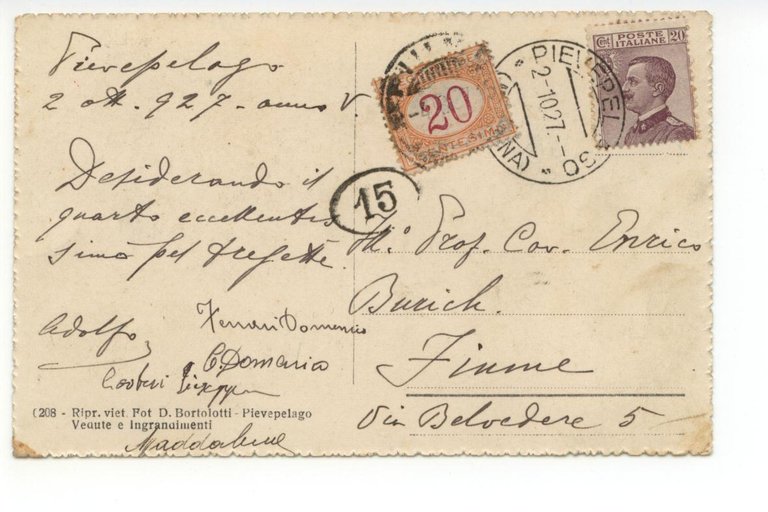 Pievepelago
2 ott. 927 - anno V.
Desiderando il
quarto eccellentis
simo pel tresette.
Adolfo
Ferrari Domenico
C. Domenia
Giuseppe
Maddalena
(208 - Ripr. viet. Fot D. Bortolotti - Pievepelago
Vedute e Ingrandimenti
20
CENTESIMI
15
PIEVEPEL
2.10.27.
Cent. POSTE ITALIANE 20
Ill.º Prof. Cav. Enrico
Burich.
Fiume
Via Belvedere 5